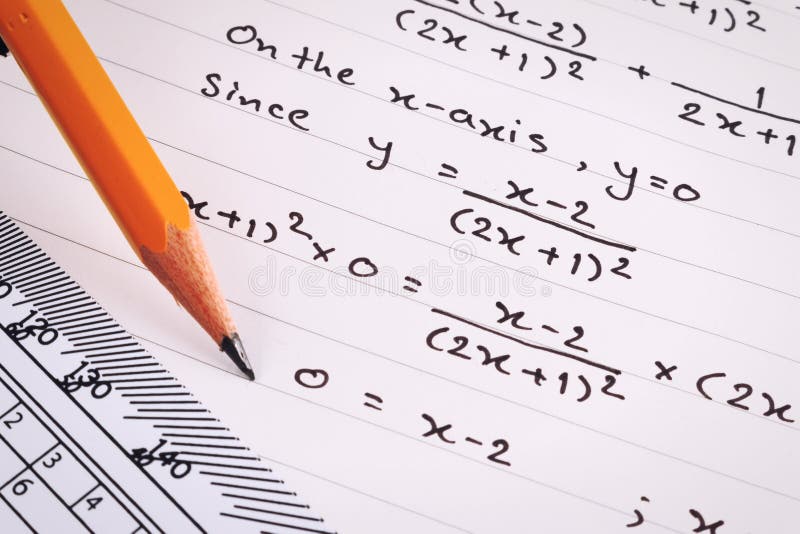 (x-2)/(2x+1)² + 1/(2x+1
x+1)²
On the x-axis, y=0
since y = x-2/(2x+1)²
x+1)² × 0 = x-2/(2x+1)² × (2x
0 = x-2
; x
120
130
140
2
3
4
6
dreamstime